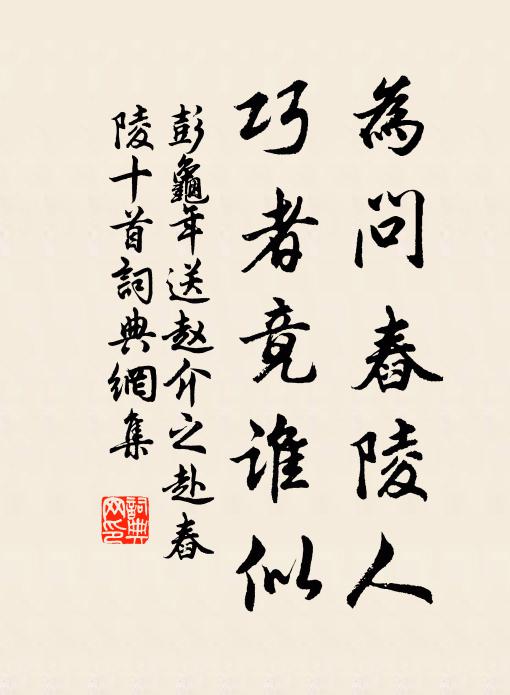 為問舂陵人
巧者竟誰似
彭龜年送赵介之赴舂
陵十首詞典網集
詞典网印